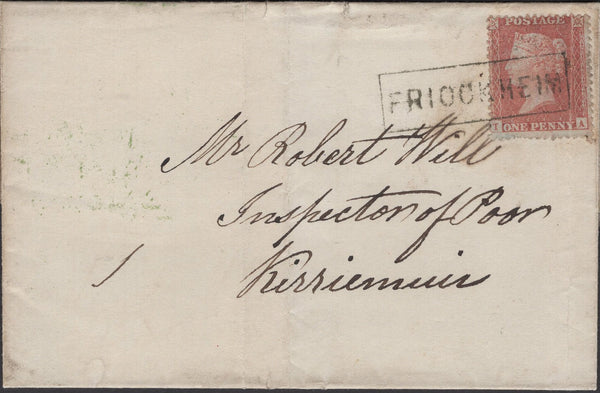 POSTAGE
FRIOCKHEIM
ONE PENNY A
Mr Robert Will
Inspector of Poor
Kirriemuir
1